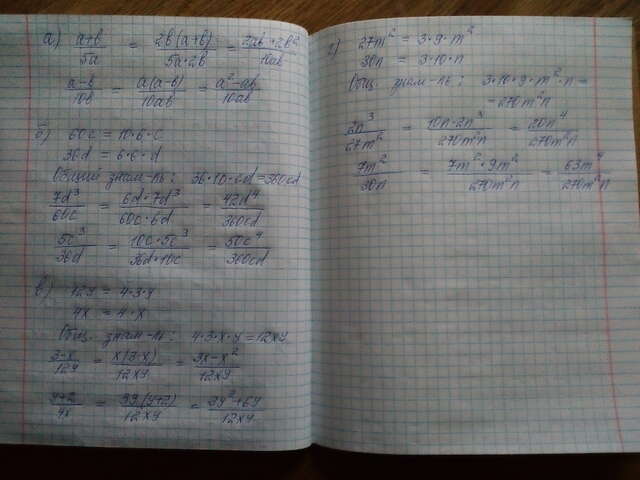 а) a+b/5a = 2b(a+b)/5a·2b = 2ab+2b²/10ab
a-b/10b = a(a-b)/10ab = a²-ab/10ab
б) 60c = 10·6·c
36d = 6·6·d
Общий знам-ль: 36·10·c·d=360cd
7d³/60c = 6d·7d³/60c·6d = 42d⁴/360cd
5c³/36d = 10c·5c³/36d·10c = 50c⁴/360cd
в) 12y = 4·3·y
4x = 4·x
Общ. знам-ль: 4·3·x·y=12xy
3-x/12y = x(3-x)/12xy = 3x-x²/12xy
y+2/4x = 3y(y+2)/12xy = 3y²+6y/12xy
г) 27m² = 3·9·m²
30n = 3·10·n
Общ. знам-ль: 3·10·9·m²·n =
=270m²n
2n³/27m² = 10n·2n³/270m²n = 20n⁴/270m²n
7m²/30n = 7m²·9m²/270m²n = 63m⁴/270m²n